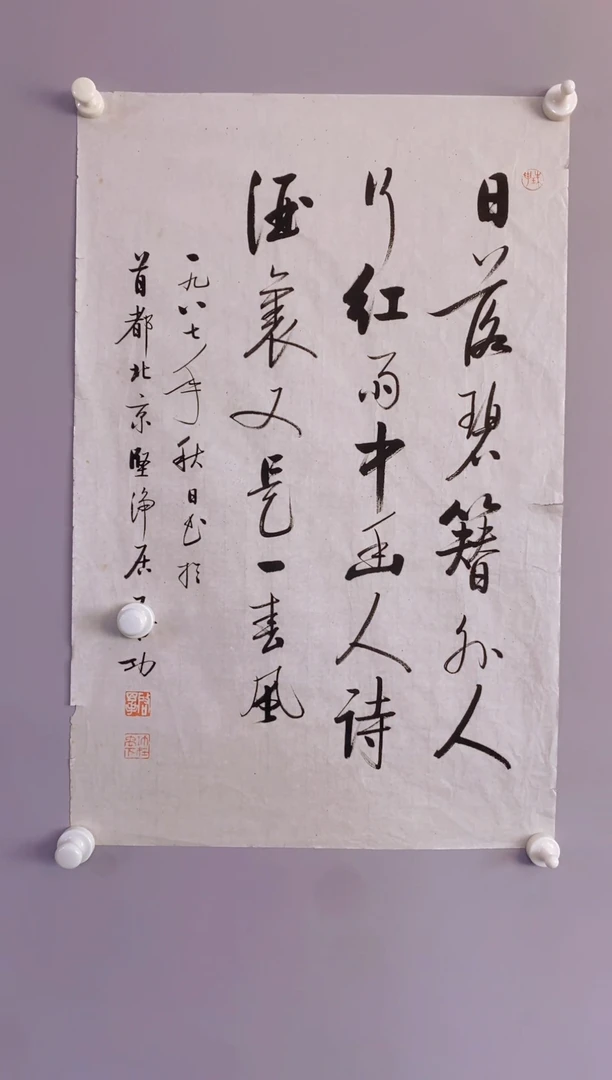 日落碧簪外人
行红雨中幽人诗
酒裏又是一春风
一九八七年秋日书於
首都北京坚净居 功